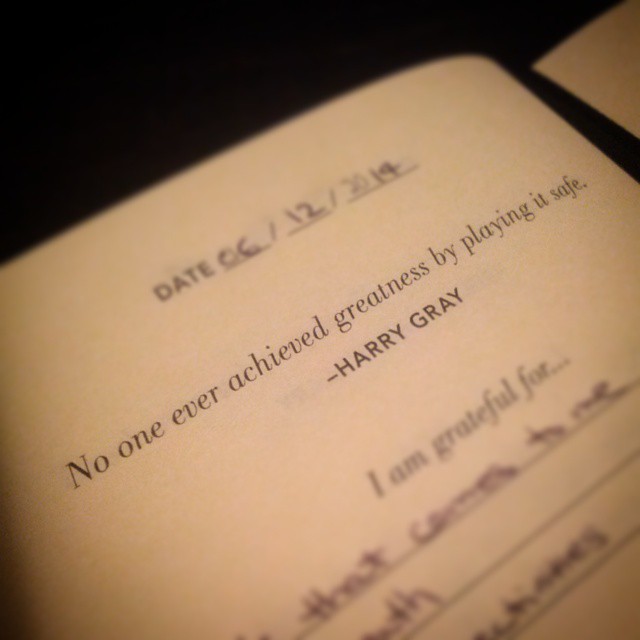 DATE 06 / 12 / 2014
No one ever achieved greatness by playing it safe.
–HARRY GRAY
I am grateful for...
that comes to me